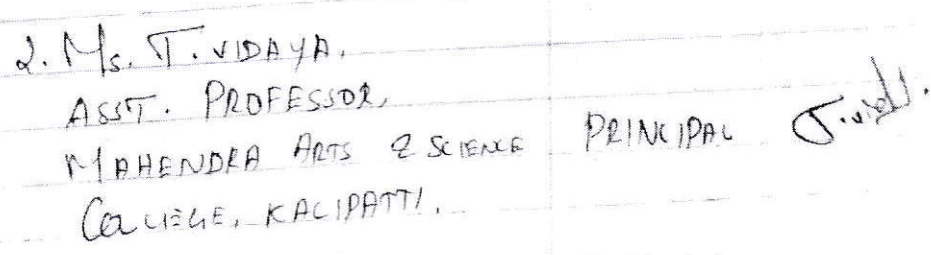 2. Ms. T. VIDAYA,
ASST. PROFESSOR,
MAHENDRA ARTS & SCIENCE PRINCIPAL T.vid
COLLEGE, KALIPATTI.